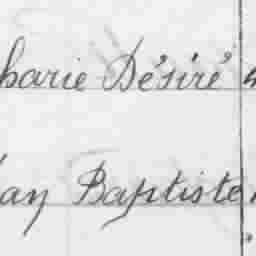 harie Désiré
an Baptiste